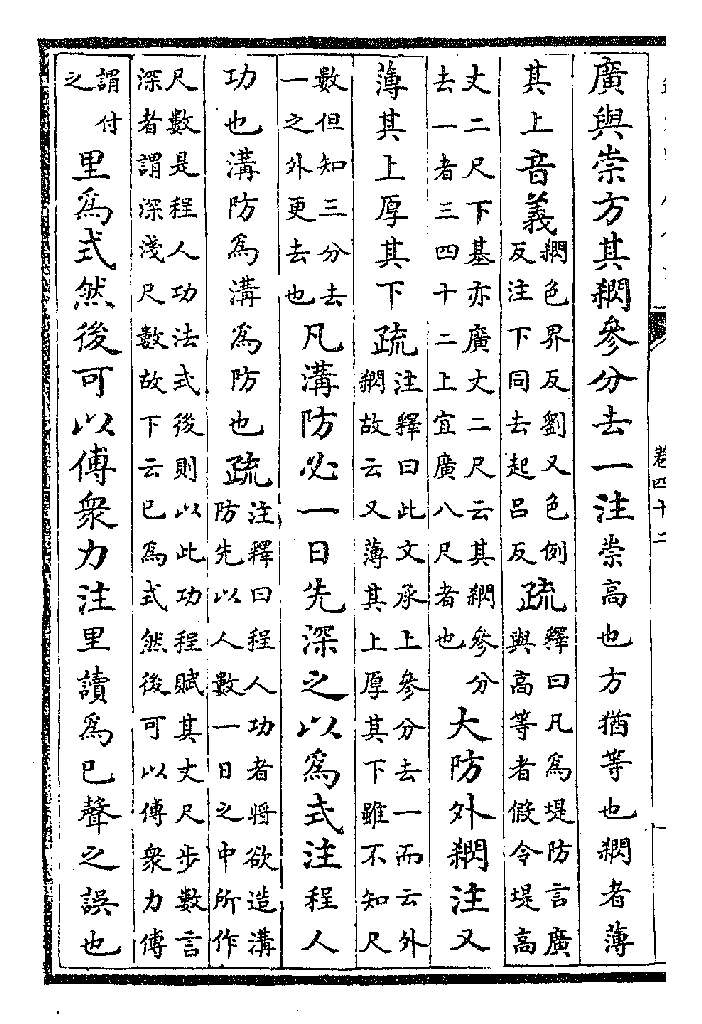 廣與崇方其閷參分去一注崇高也方猶等也閷者薄
其上音義閷色界反劉又色例
反注下同去起呂反疏釋曰凡為堤防言廣
與高等者假令堤高
丈二尺下基亦廣丈二尺云其閷參分
去一者三四十二上宜廣八尺者也大防外閷注又
薄其上厚其下疏注釋曰此文承上參分去一而云外
閷故云又薄其上厚其下雖不知尺
數但知三分去
一之外更去也凡溝防必一日先深之以為式注程人
功也溝防為溝為防也疏注釋曰程人功者將欲造溝
防先以人數一日之中所作
尺數是程人功法式後則以此功程賦其丈尺步數言
深者謂深淺尺數故下云已為式然後可以傅衆力傅
謂付
之里為式然後可以傅衆力注里讀為已聲之誤也
卷四十二